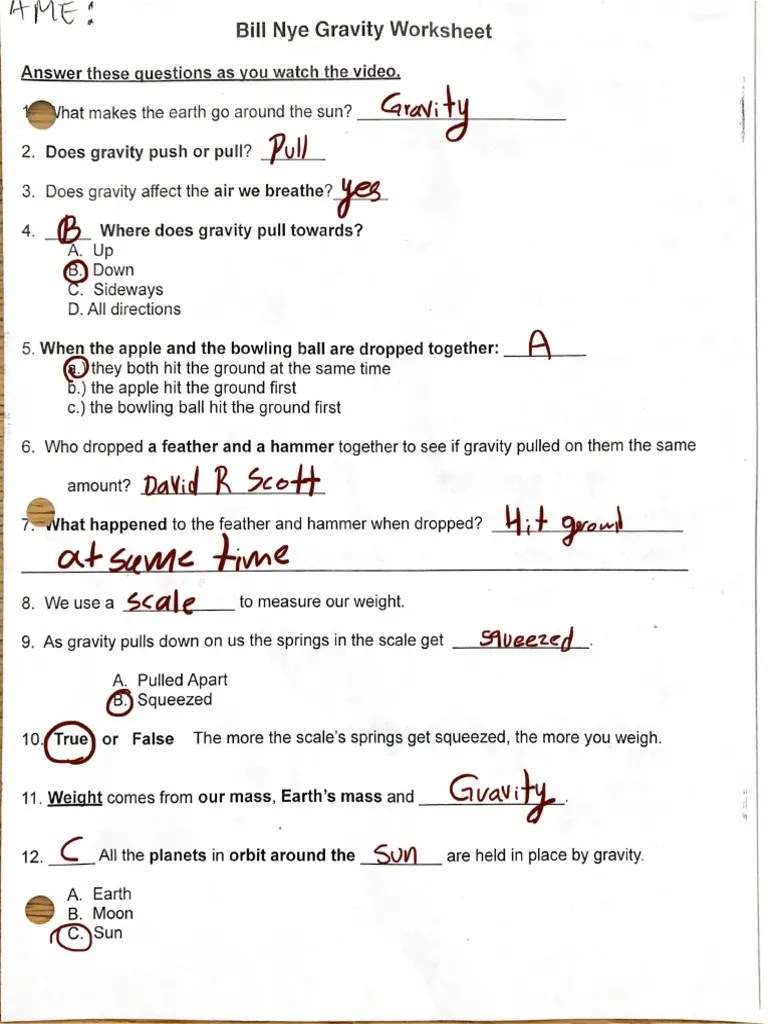 AME:
Bill Nye Gravity Worksheet
Answer these questions as you watch the video.
1 What makes the earth go around the sun? Gravity
2. Does gravity push or pull? Pull
3. Does gravity affect the air we breathe? yes
4. B Where does gravity pull towards?
A. Up
B. Down
C. Sideways
D. All directions
5. When the apple and the bowling ball are dropped together: A
a.) they both hit the ground at the same time
b.) the apple hit the ground first
c.) the bowling ball hit the ground first
6. Who dropped a feather and a hammer together to see if gravity pulled on them the same
amount? David R Scott
7. What happened to the feather and hammer when dropped? Hit ground
at same time
8. We use a scale to measure our weight.
9. As gravity pulls down on us the springs in the scale get squeezed.
A. Pulled Apart
B. Squeezed
10. True or False The more the scale's springs get squeezed, the more you weigh.
11. Weight comes from our mass, Earth's mass and Gravity.
12. C All the planets in orbit around the Sun are held in place by gravity.
A. Earth
B. Moon
C. Sun